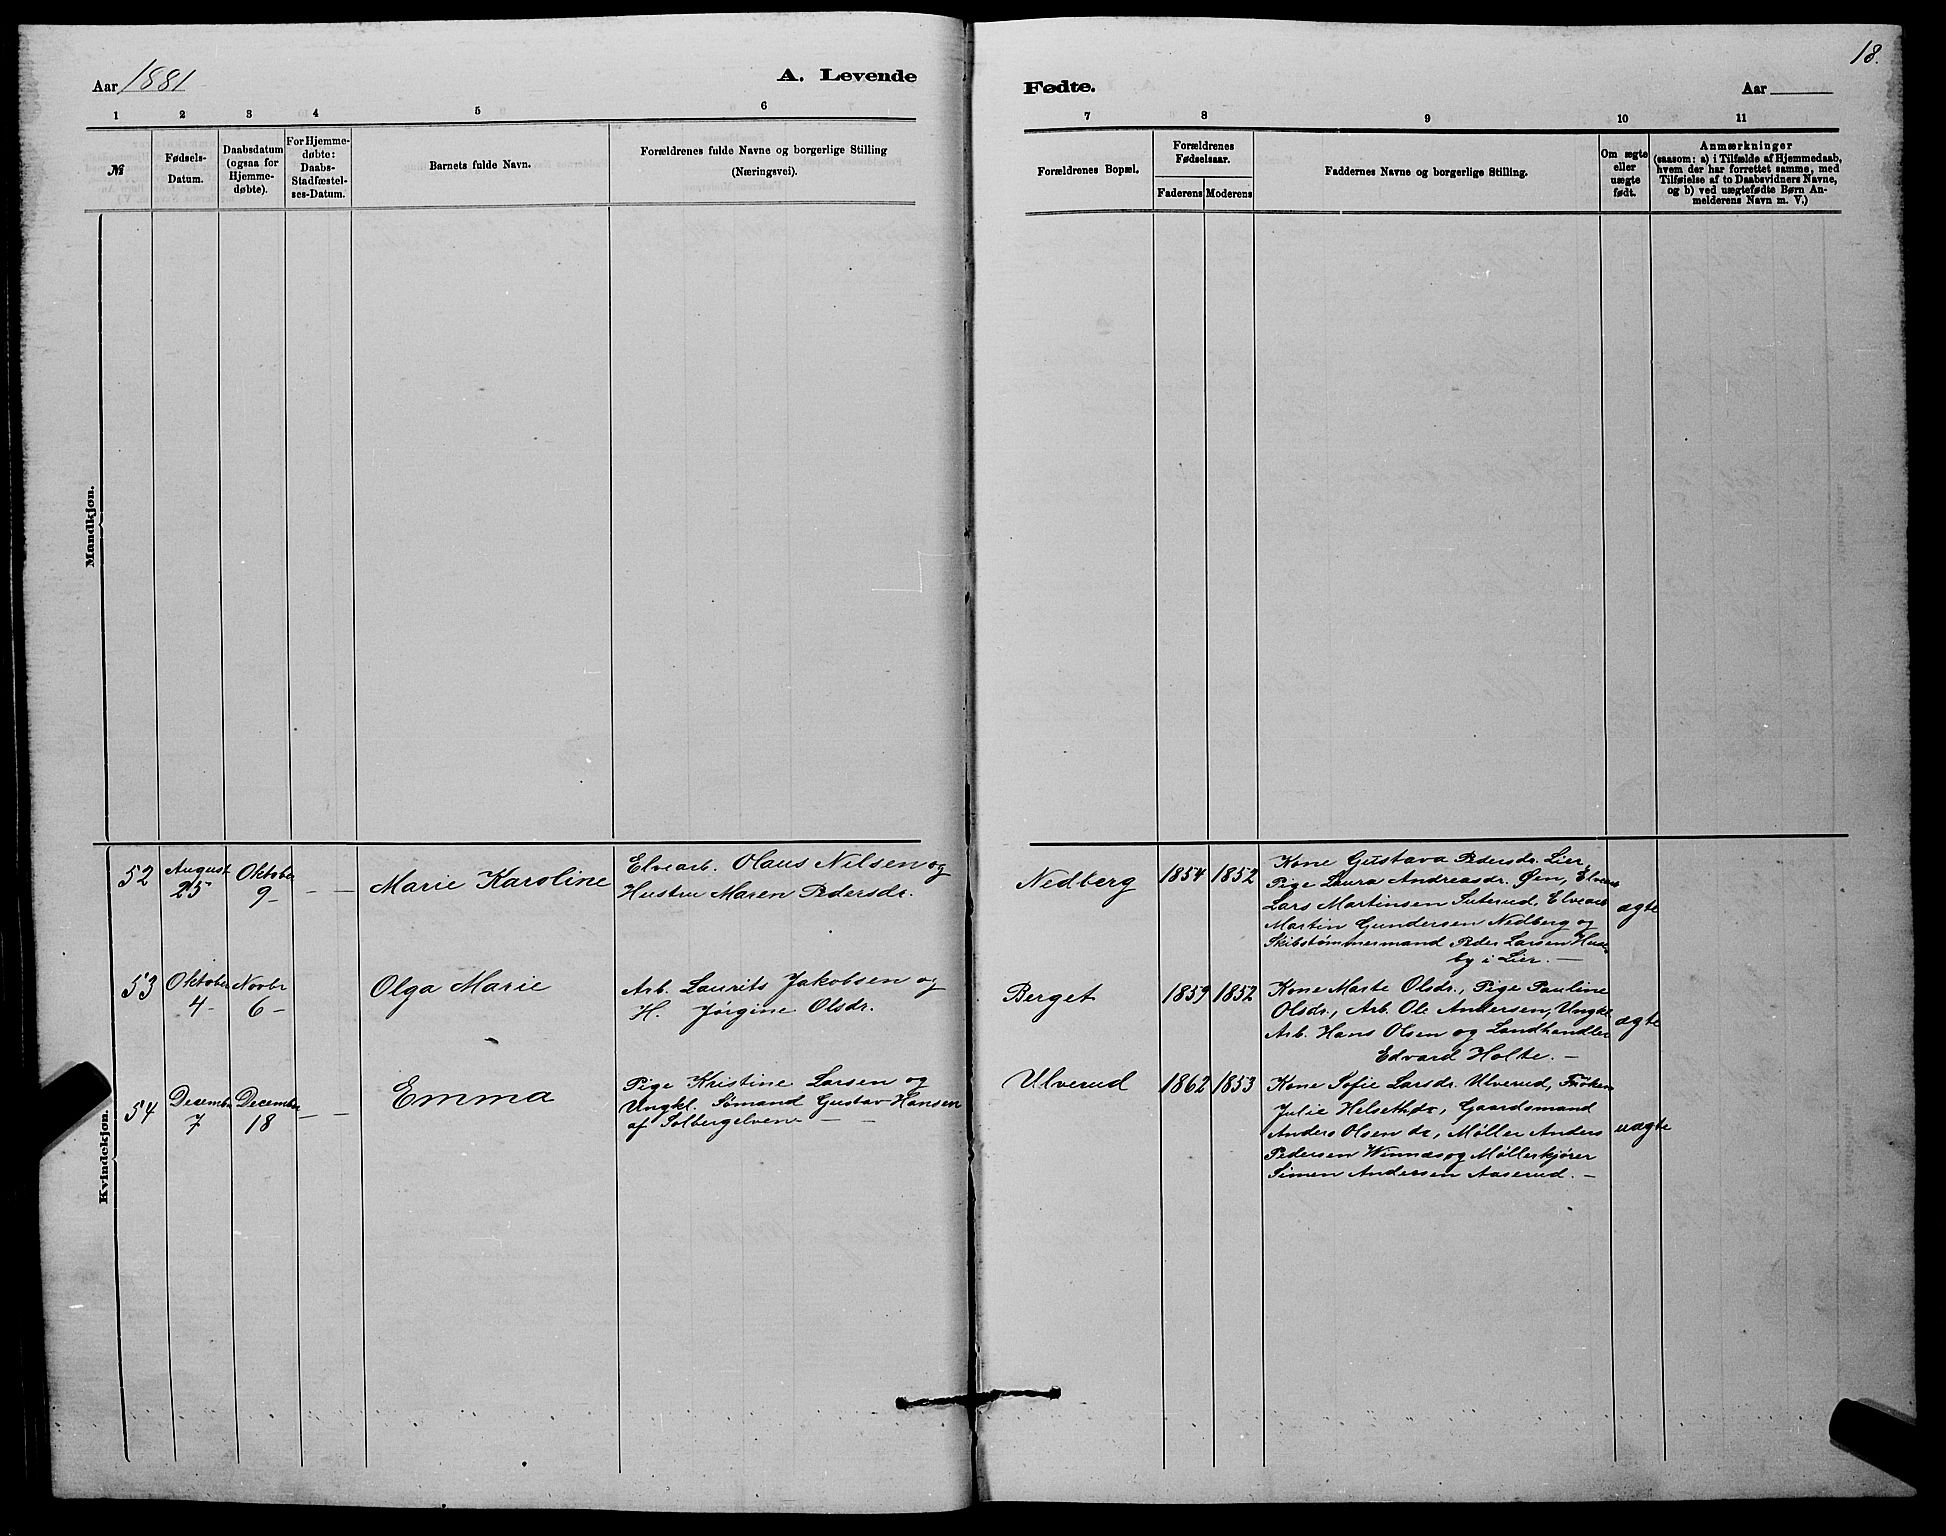 Aar 1881
A. Levende
Fødte.
Aar
18.
1 2 3 4 5 6
7 8 9 10 11
№
Fødsels-
Datum.
Daabsdatum
(ogsaa for
Hjemme-
døbte).
For Hjemme-
døbte:
Daabs-
Stadfæstel-
ses-Datum.
Barnets fulde Navn.
Forældrenes fulde Navne og borgerlige Stilling
(Næringsvei).
Forældrenes Bopæl.
Forældrenes
Fødselsaar.
Faderens Moderens
Faddernes Navne og borgerlige Stilling.
Om ægte
eller
uægte
født.
Anmærkninger
(saasom: a) i Tilfælde af Hjemmedaab,
hvem der har forrettet samme, med
Tilføielse af to Daabsvidners Navne,
og b) ved uægtefødte Børn An-
melderens Navn m. V.)
Mandkjøn.
Kvindekjøn.
52
August
25
Oktober
9-
- -
Marie Karoline
Elvearb. Olaus Nilsen og
Hustru Maren Pedersdr.
Nedberg
1854 1852
Kone Gustava Pedersdr. Lier,
Pige Laura Andreasdr. Øen, Elvearb
Lars Martinsen Seterud, Elvearb
Martin Gundersen Nedberg og
Skibstømmermand Peder Larsen Hus-
by i Lier. -
ægte
53
Oktober
4-
Novbr
6-
Olga Marie
Arb. Laurits Jakobsen og
H. Jørgine Olsdr.
Berget
1859 1852
Kone Marte Olsdr., Pige Pauline
Olsdr., Arb. Ole Andersen, Ungkl
Arb. Hans Olsen og Landhandler
Edvard Holte. -
ægte
54
December
7
December
18
- -
Emma
Pige Kristine Larsen og
Ungkl. Sømand Gustav Hansen
af Solbergelven - -
Ulverud
1862 1853
Kone Sofie Larsdr. Ulverud, Frøken
Julie Helseth do, Gaardsmand
Anders Olsen do, Møller Anders
Pedersen Winnæs og Møllerkjører
Simen Andersen Aaserud. -
uægte